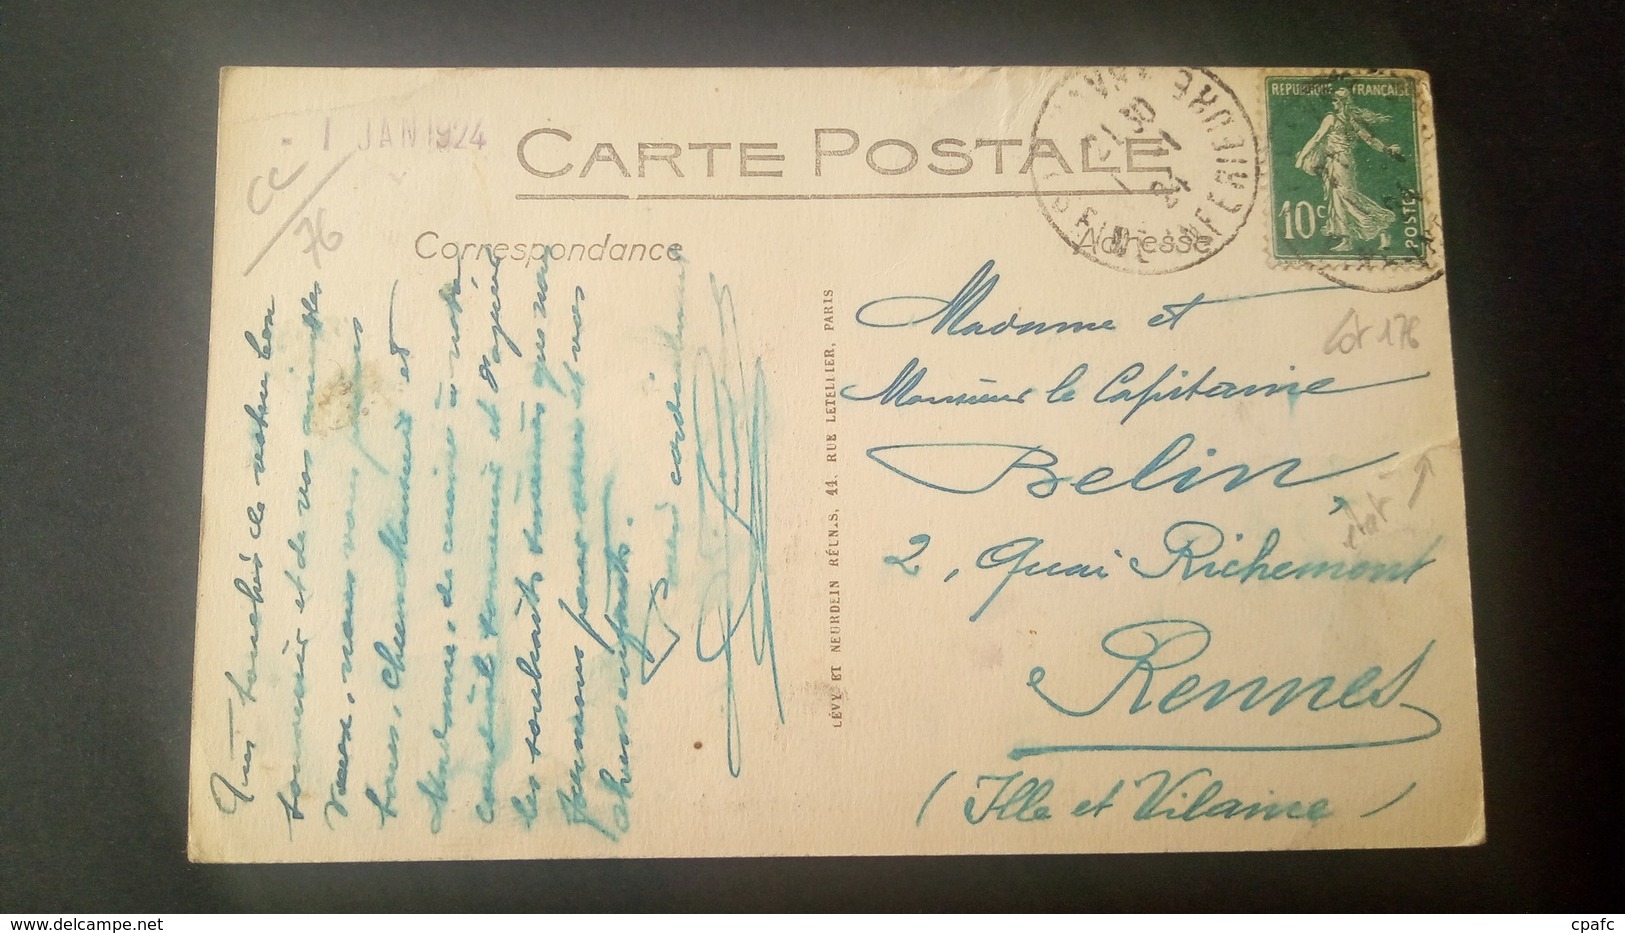 - 1 JAN 1924
CARTE POSTALE
REPUBLIQUE FRANÇAISE
10c
POSTES
INFERIEURE
CC
76
Correspondance
Adresse
Très touchés de votre bon
souvenir et de vos aimables
vœux, nous vous
tous, cher Monsieur et
Madame, de croire à notre
et d'agréer
les souhaits sincères que nous
formons pour vous et vos
chers enfants.
LÉVY ET NEURDEIN RÉUNIS, 44, RUE LETELLIER, PARIS
Madame et
Monsieur le Capitaine
Belin
2, Quai Richemont
Rennes
(Ille et Vilaine)
Lot 176
état
delcampe.net
cpafc